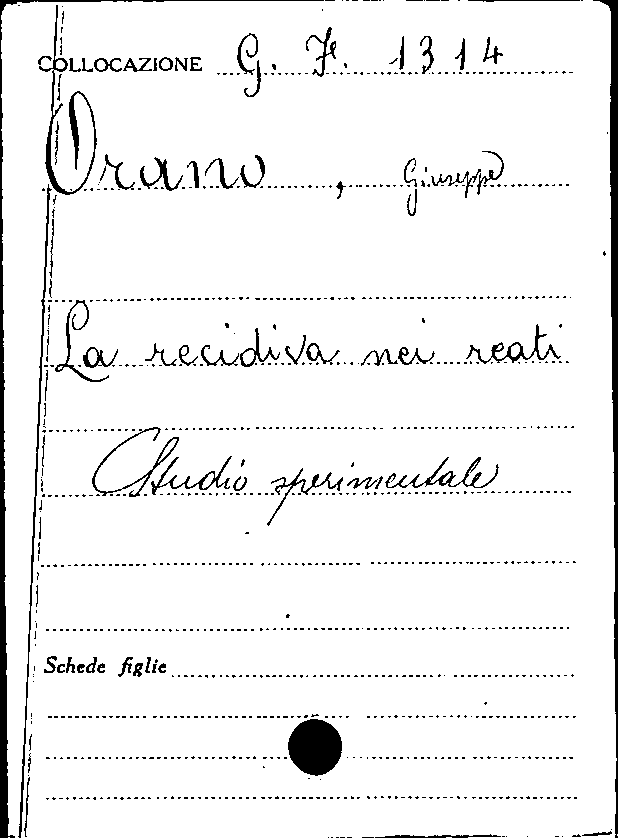 COLLOCAZIONE G. F. 1314
Orano, Giuseppe
La recidiva nei reati
Studio sperimentale
Schede figlie